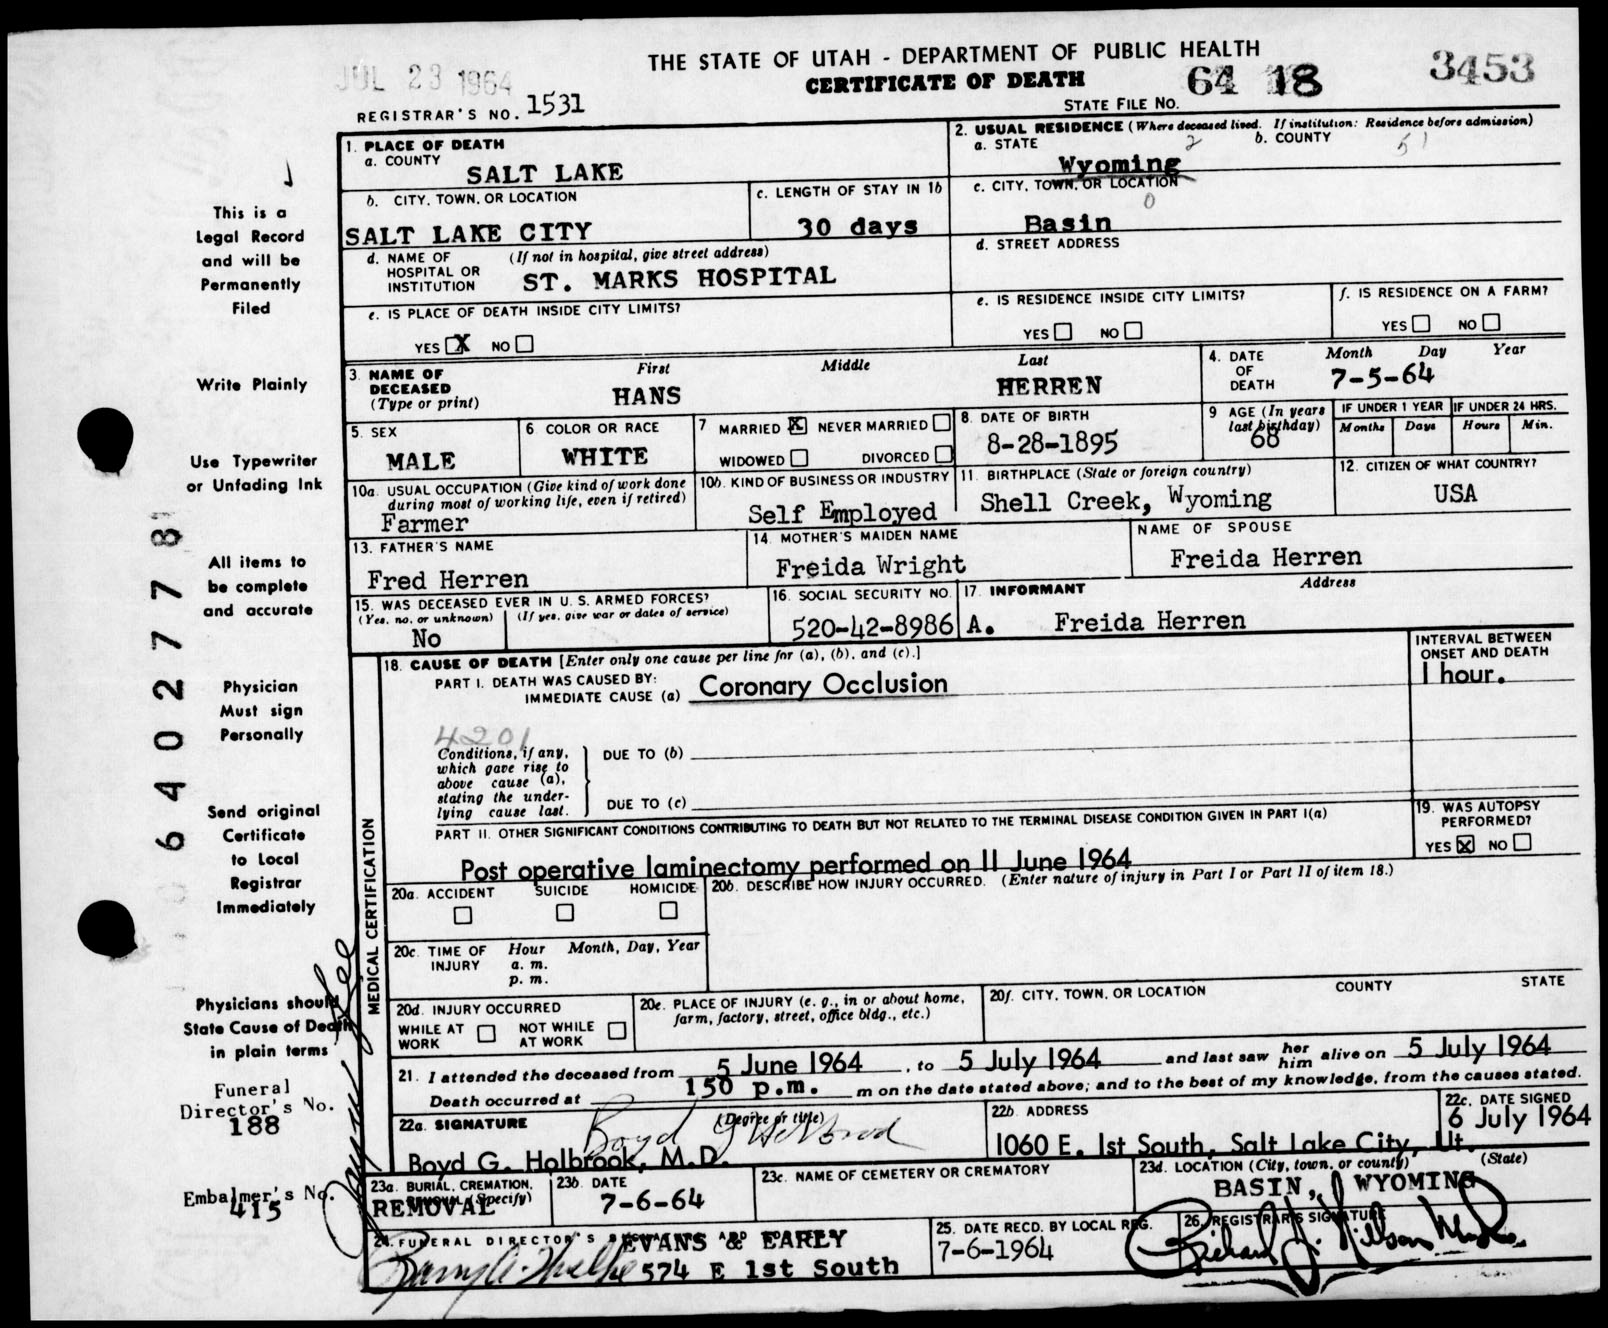 THE STATE OF UTAH - DEPARTMENT OF PUBLIC HEALTH
CERTIFICATE OF DEATH
JUL 23 1964
64 18 3453
REGISTRAR'S NO. 1531
STATE FILE NO.
1. PLACE OF DEATH
a. COUNTY
SALT LAKE
2. USUAL RESIDENCE (Where deceased lived. If institution: Residence before admission)
a. STATE 2 b. COUNTY 51
Wyoming
b. CITY, TOWN, OR LOCATION
SALT LAKE CITY
c. LENGTH OF STAY IN 1b
30 days
c. CITY, TOWN, OR LOCATION
0
Basin
d. NAME OF HOSPITAL OR INSTITUTION (If not in hospital, give street address)
ST. MARKS HOSPITAL
d. STREET ADDRESS
e. IS PLACE OF DEATH INSIDE CITY LIMITS?
YES X NO
e. IS RESIDENCE INSIDE CITY LIMITS?
YES NO
f. IS RESIDENCE ON A FARM?
YES NO
3. NAME OF DECEASED (Type or print)
First Middle Last
HANS HERREN
4. DATE OF DEATH
Month Day Year
7-5-64
5. SEX
MALE
6. COLOR OR RACE
WHITE
7 MARRIED X NEVER MARRIED
WIDOWED DIVORCED
8. DATE OF BIRTH
8-28-1895
9 AGE (In years last birthday)
68
IF UNDER 1 YEAR IF UNDER 24 HRS.
Months Days Hours Min.
10a. USUAL OCCUPATION (Give kind of work done during most of working life, even if retired)
Farmer
10b. KIND OF BUSINESS OR INDUSTRY
Self Employed
11. BIRTHPLACE (State or foreign country)
Shell Creek, Wyoming
12. CITIZEN OF WHAT COUNTRY?
USA
13. FATHER'S NAME
Fred Herren
14. MOTHER'S MAIDEN NAME
Freida Wright
NAME OF SPOUSE
Freida Herren
15. WAS DECEASED EVER IN U. S. ARMED FORCES?
(Yes, no, or unknown) (If yes, give war or dates of service)
No
16. SOCIAL SECURITY NO.
520-42-8986 A.
17. INFORMANT Address
Freida Herren
MEDICAL CERTIFICATION
18. CAUSE OF DEATH [Enter only one cause per line for (a), (b), and (c).]
INTERVAL BETWEEN ONSET AND DEATH
PART I. DEATH WAS CAUSED BY:
IMMEDIATE CAUSE (a) Coronary Occlusion 1 hour.
4201
Conditions, if any,
which gave rise to
above cause (a),
stating the under-
lying cause last.
DUE TO (b)
DUE TO (c)
PART II. OTHER SIGNIFICANT CONDITIONS CONTRIBUTING TO DEATH BUT NOT RELATED TO THE TERMINAL DISEASE CONDITION GIVEN IN PART I(a)
Post operative laminectomy performed on 11 June 1964
19. WAS AUTOPSY PERFORMED?
YES X NO
20a. ACCIDENT SUICIDE HOMICIDE
20b. DESCRIBE HOW INJURY OCCURRED. (Enter nature of injury in Part I or Part II of item 18.)
20c. TIME OF INJURY Hour Month, Day, Year
a. m.
p. m.
20d. INJURY OCCURRED
WHILE AT WORK NOT WHILE AT WORK
20e. PLACE OF INJURY (e. g., in or about home, farm, factory, street, office bldg., etc.)
20f. CITY, TOWN, OR LOCATION COUNTY STATE
21. I attended the deceased from 5 June 1964, to 5 July 1964 and last saw her him alive on 5 July 1964
Death occurred at 150 p.m. m on the date stated above; and to the best of my knowledge, from the causes stated.
22a. SIGNATURE (Degree or title)
Boyd G Holbrook
Boyd G. Holbrook, M.D.
22b. ADDRESS
1060 E. 1st South, Salt Lake City, Ut.
22c. DATE SIGNED
6 July 1964
23a. BURIAL, CREMATION, REMOVAL (Specify)
REMOVAL
23b. DATE
7-6-64
23c. NAME OF CEMETERY OR CREMATORY
23d. LOCATION (City, town, or county) (State)
BASIN, WYOMING
24. FUNERAL DIRECTOR'S
EVANS & EARLY
574 E 1st South
25. DATE RECD. BY LOCAL REG.
7-6-1964
26. REGISTRAR'S SIGNATURE
This is a
Legal Record
and will be
Permanently
Filed
Write Plainly
Use Typewriter
or Unfading Ink
All items to
be complete
and accurate
Physician
Must sign
Personally
Send original
Certificate
to Local
Registrar
Immediately
Physicians should
State Cause of Death
in plain terms
Funeral
Director's No.
188
Embalmer's No.
415
64027778